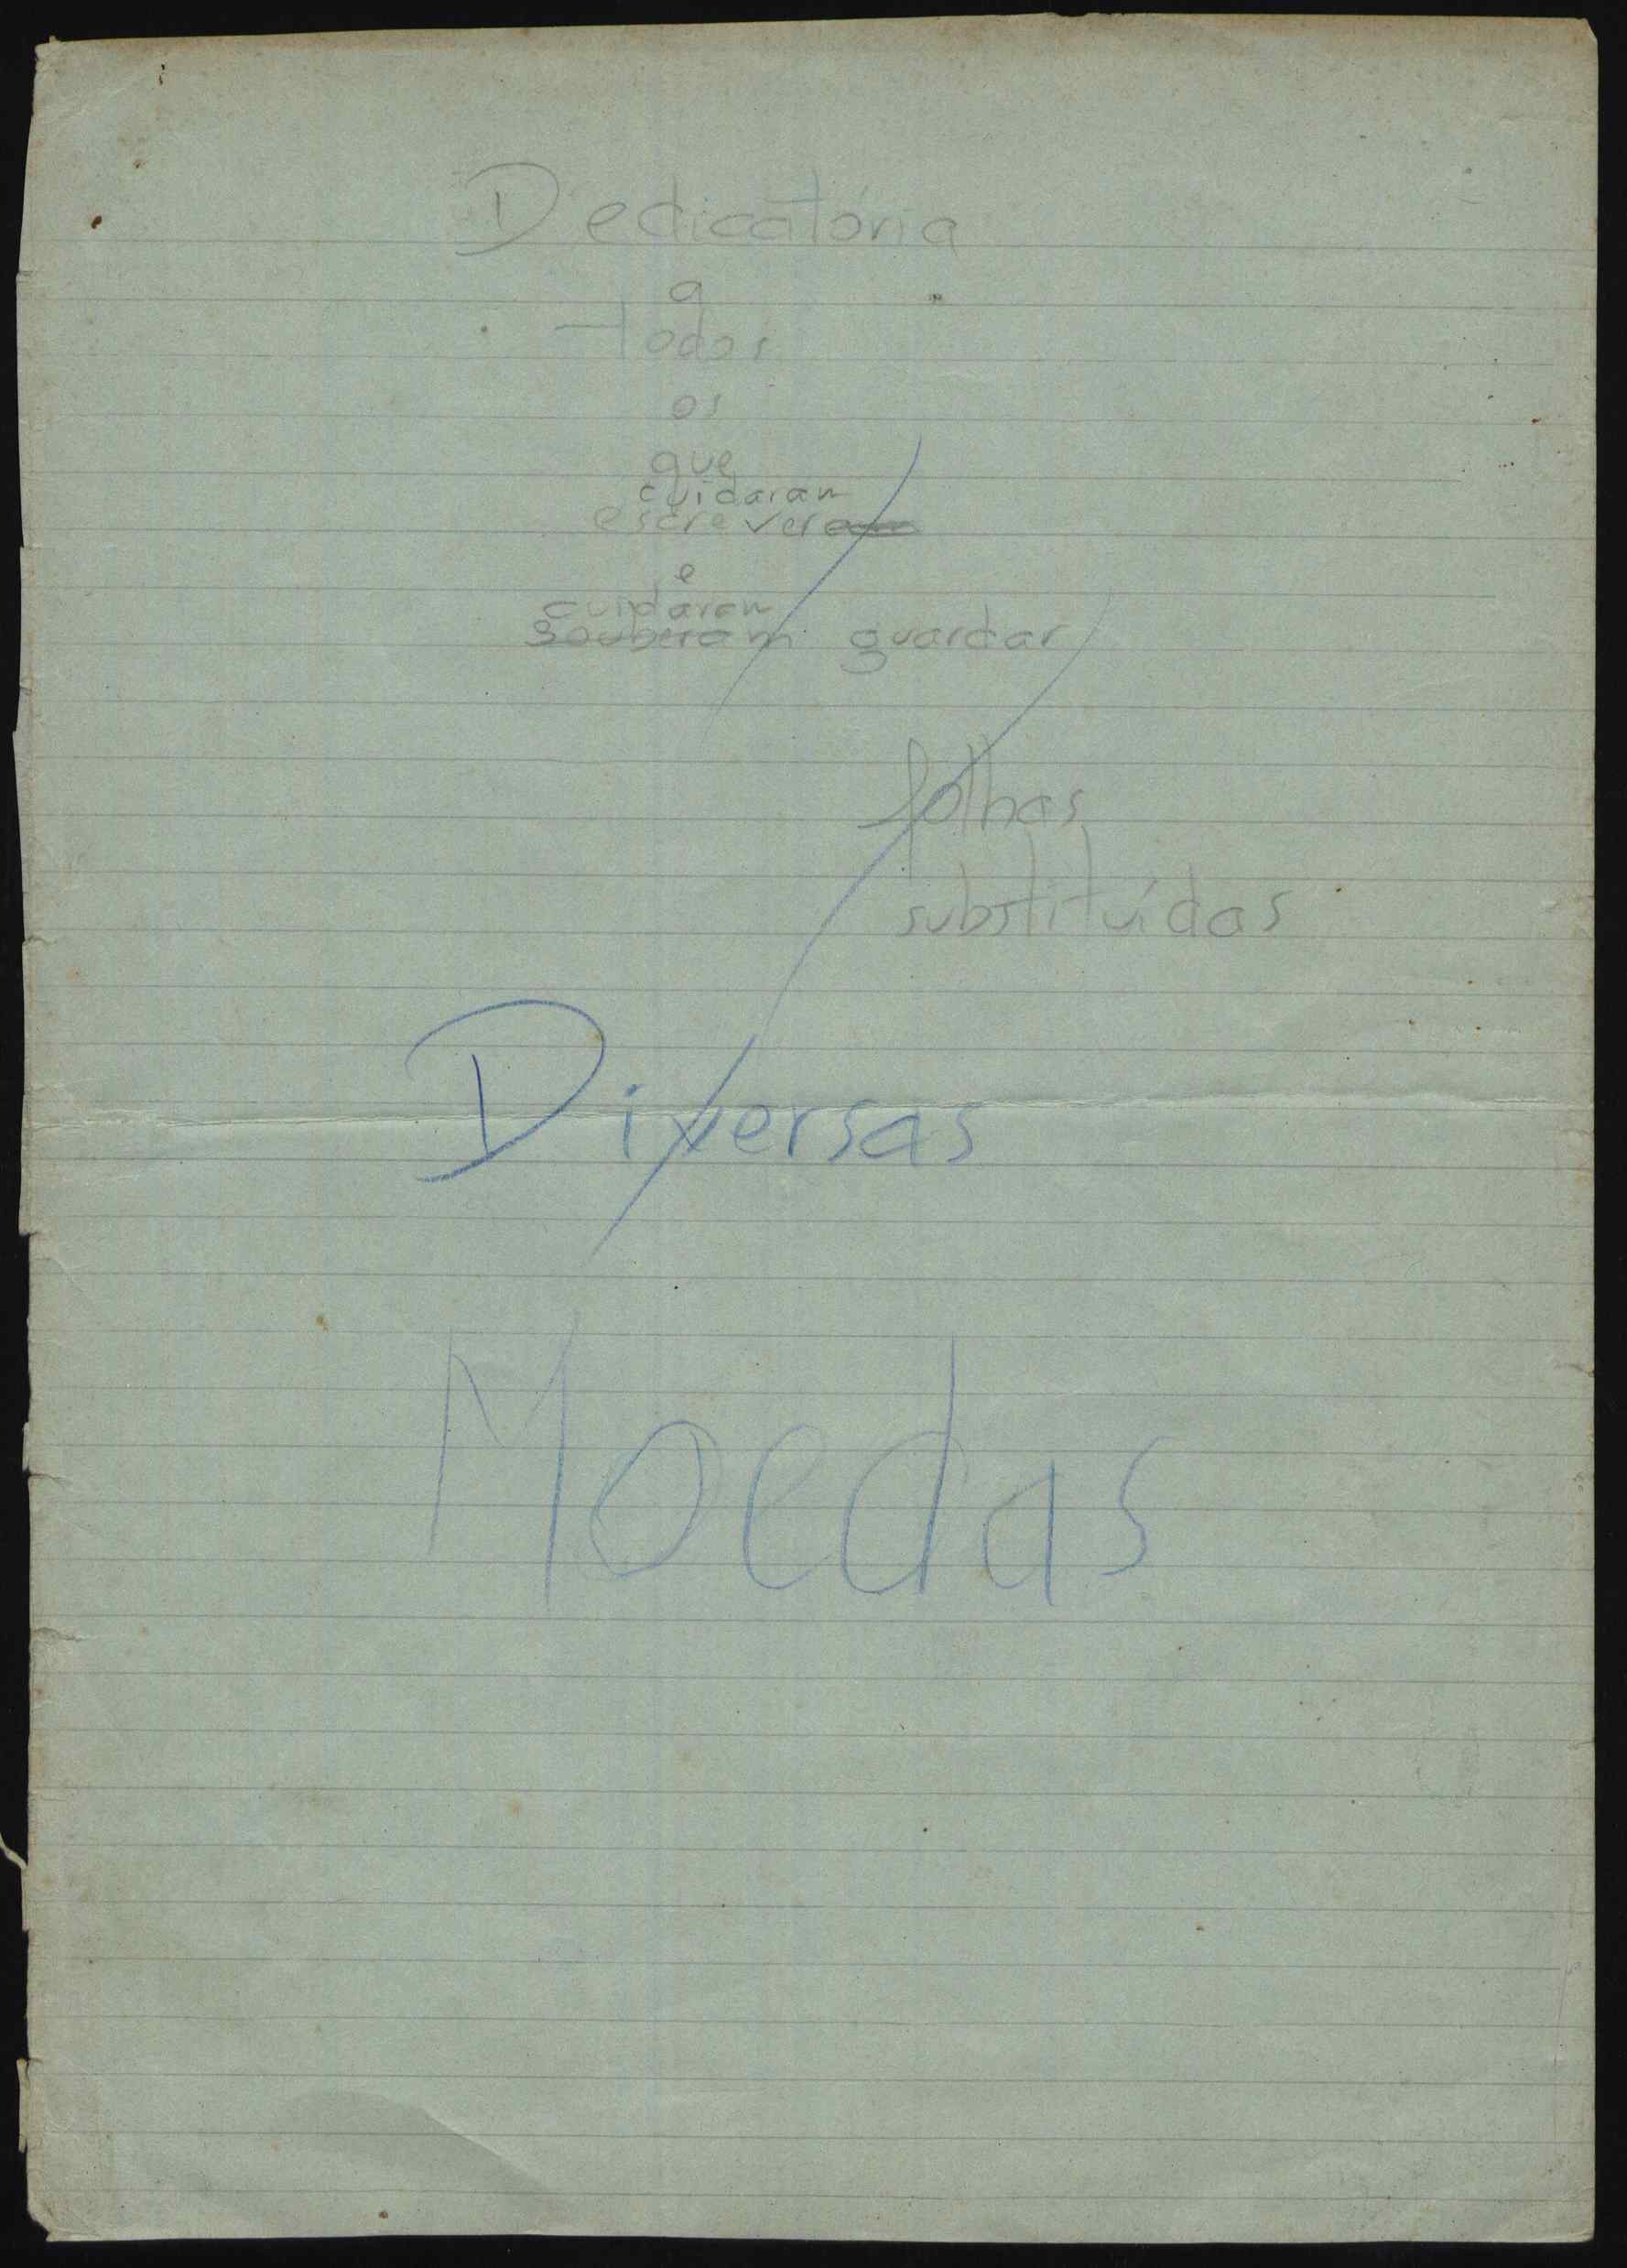 Dedicatória
a
todos
os
que
cuidaram
escreveram
e
cuidaram
souberam guardar
folhas
substituídas
Diversas
Moedas